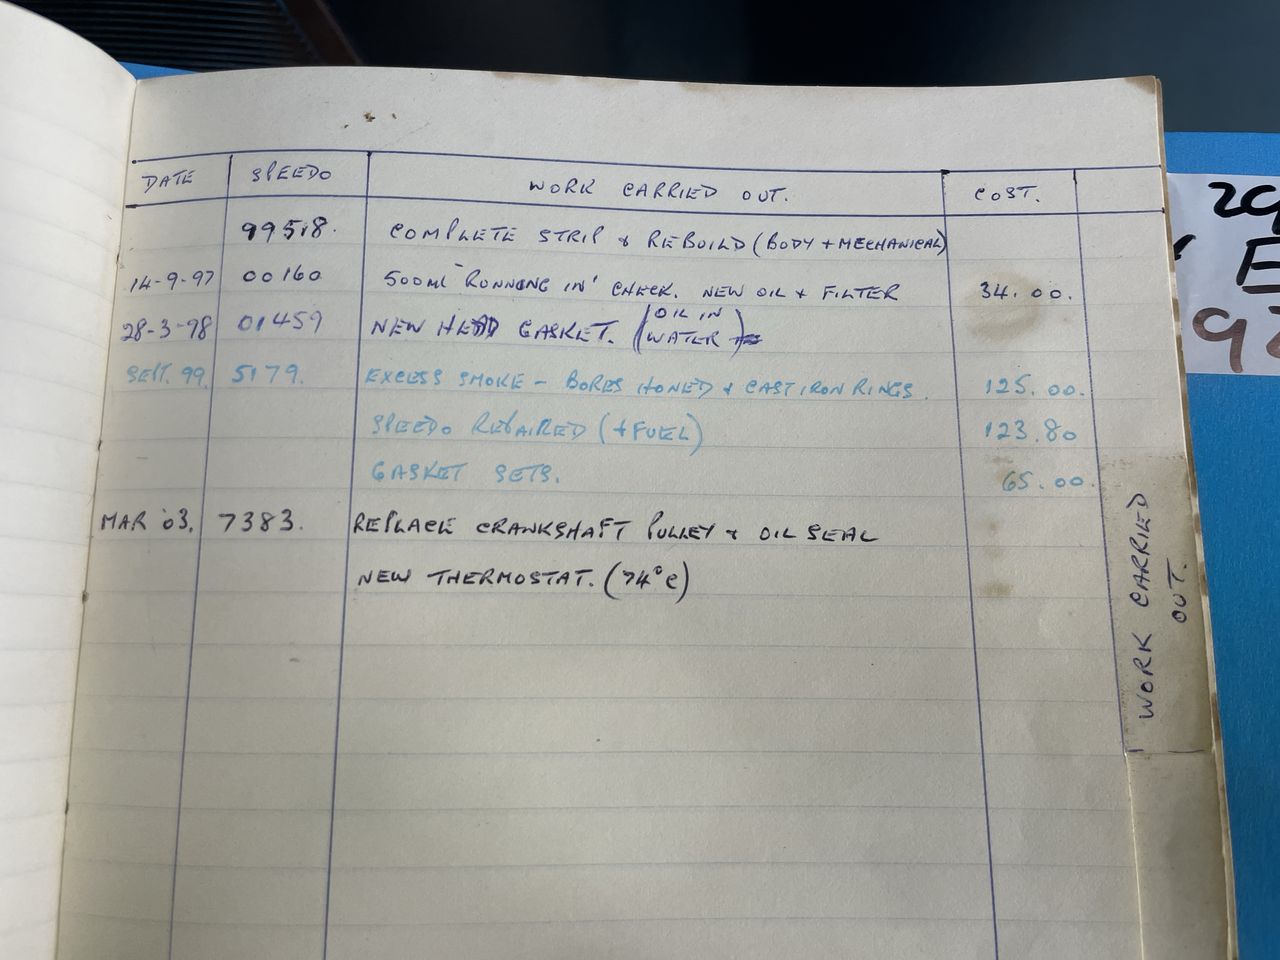 DATE SPEEDO WORK CARRIED OUT. COST.
99518. COMPLETE STRIP & REBUILD (BODY + MECHANICAL)
14-9-97 00160 500ml "RUNNING IN" CHECK. NEW OIL & FILTER 34.00.
28-3-98 01459 NEW HEAD GASKET. (OIL IN WATER)
SEPT. 99. 5179. EXCESS SMOKE - BORES HONED & CAST IRON RINGS. 125.00.
SPEEDO REPAIRED (+ FUEL) 123.80
GASKET SETS. 65.00.
MAR 03. 7383. REPLACE CRANKSHAFT PULLEY & OIL SEAL
NEW THERMOSTAT. (74°C)
WORK CARRIED
OUT.